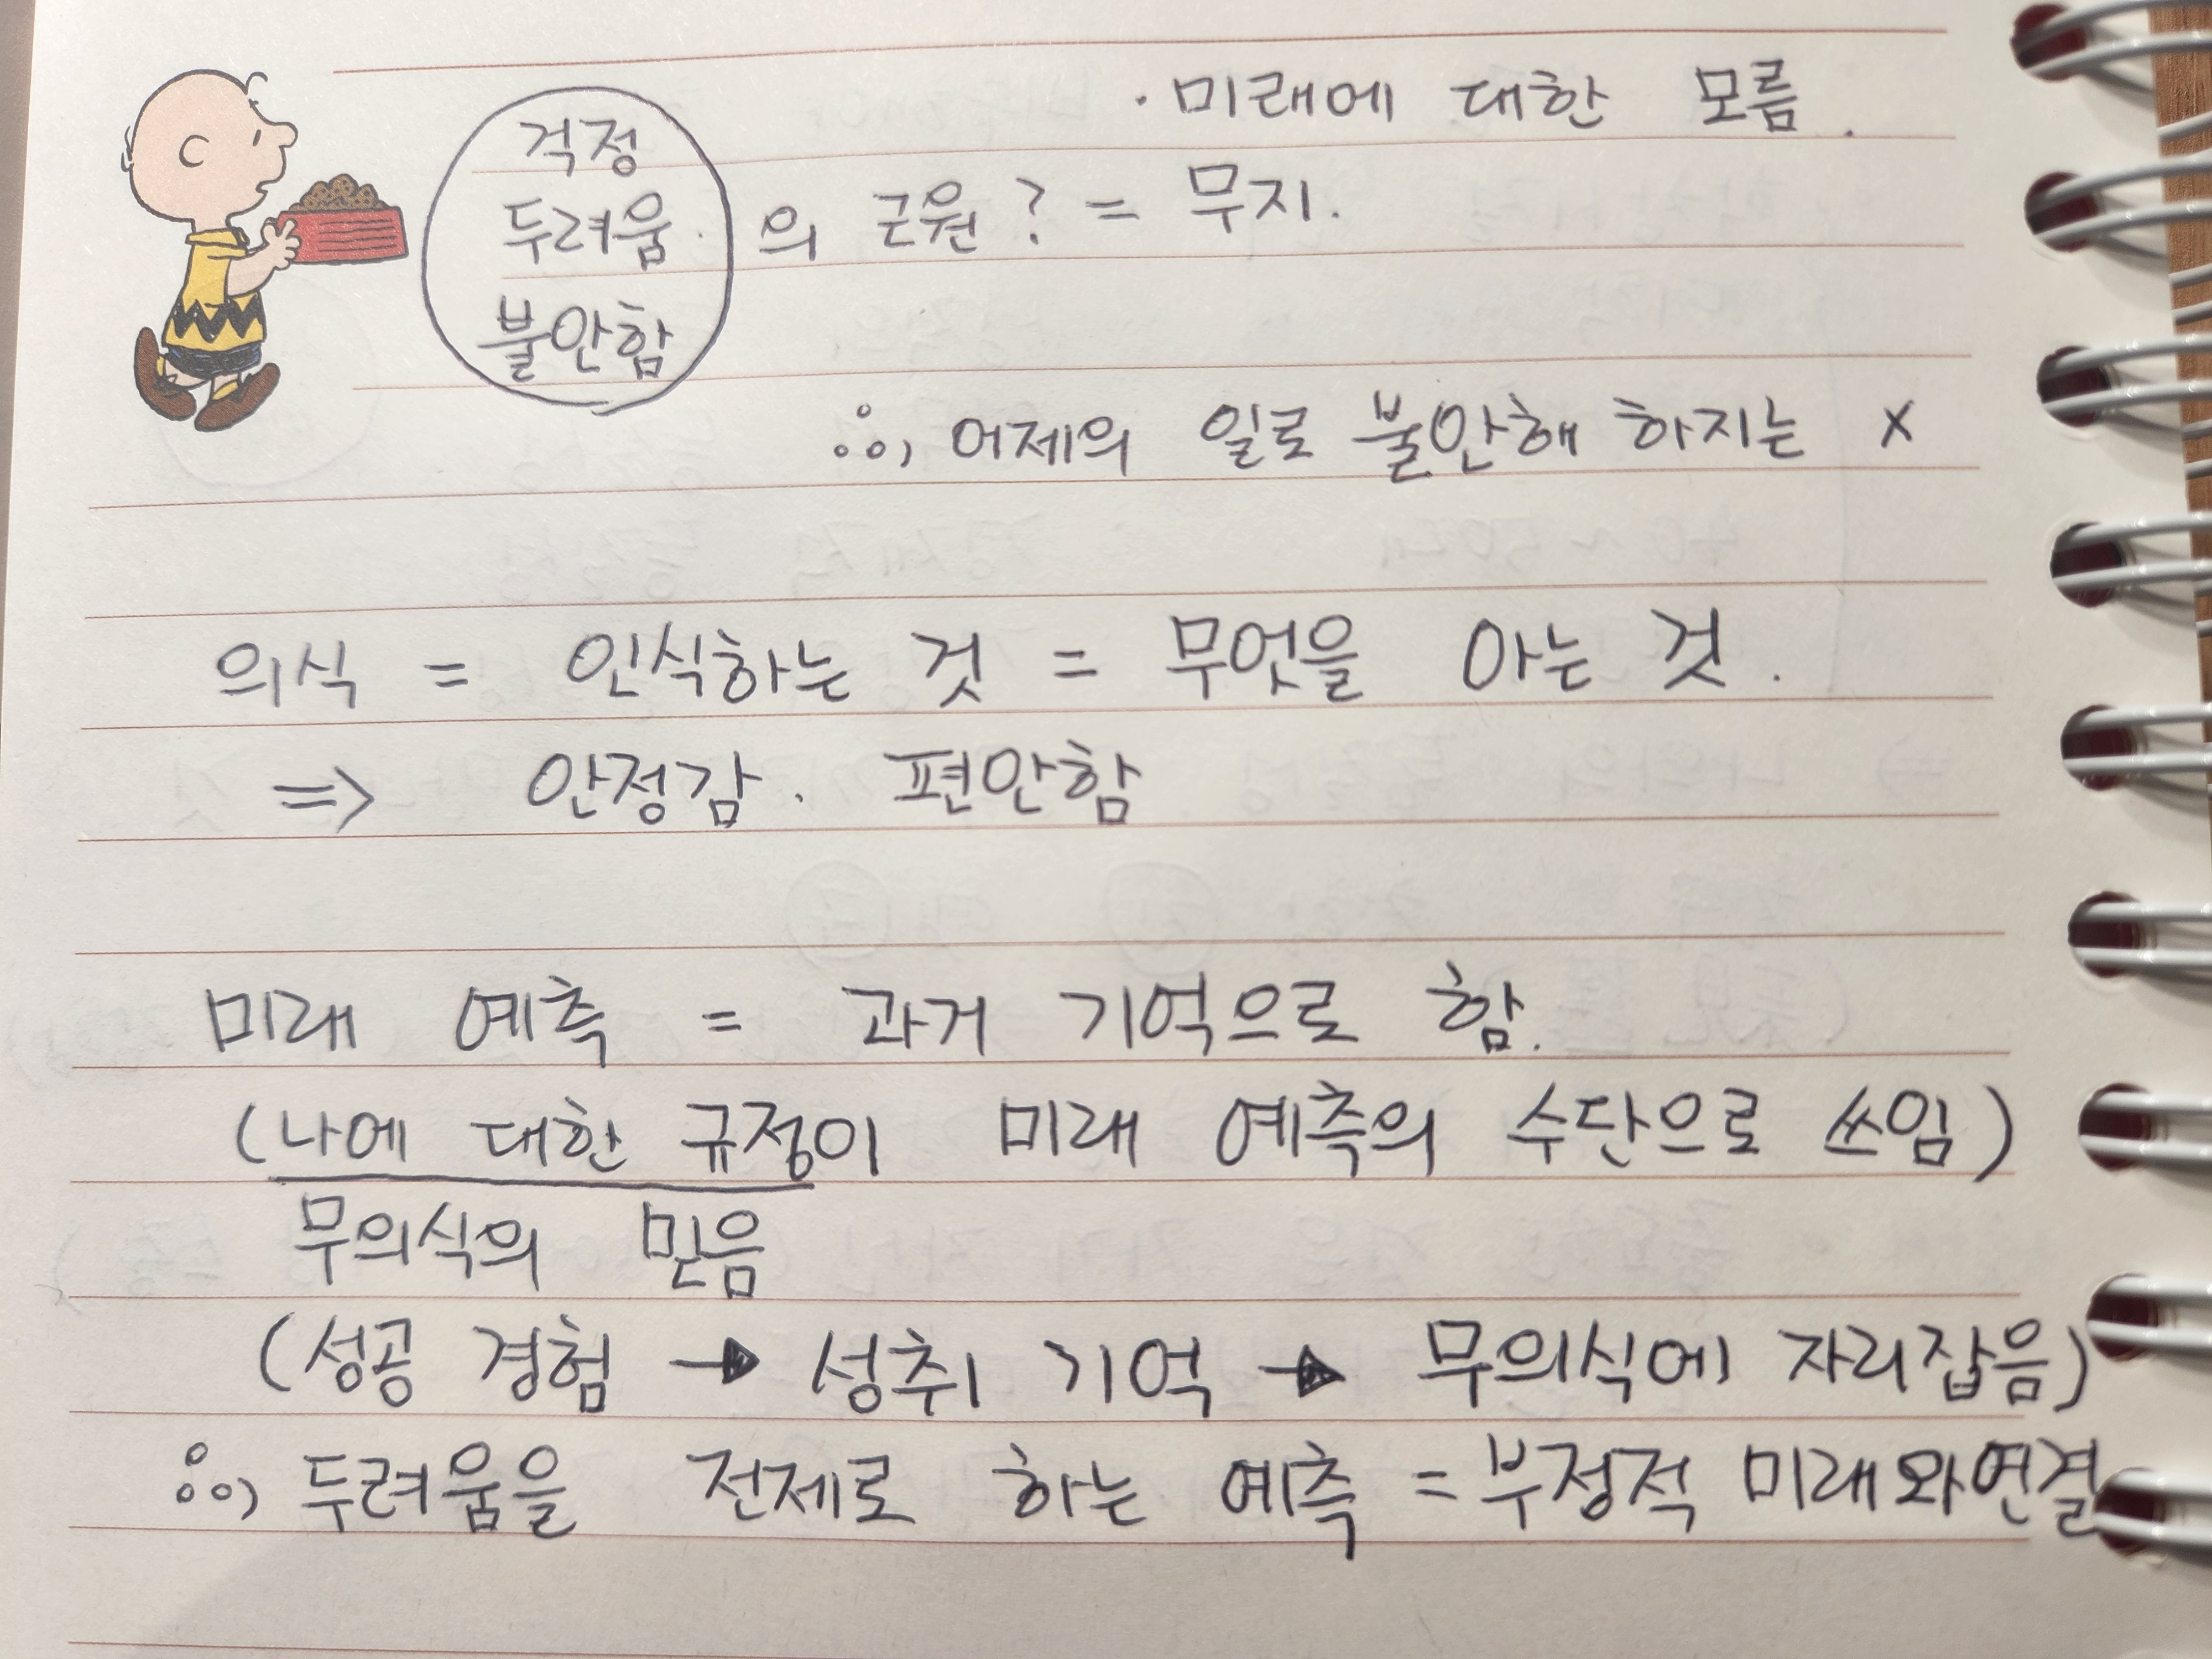 · 미래에 대한 모름.
걱정
두려움.
불안함
의 근원? = 무지.
∴, 어제의 일로 불안해 하지는 x
의식 = 인식하는 것 = 무엇을 아는 것.
⇒ 안정감. 편안함
미래 예측 = 과거 기억으로 함.
(나에 대한 규정이 미래 예측의 수단으로 쓰임)
무의식의 믿음
(성공 경험 → 성취 기억 → 무의식에 자리잡음)
∴, 두려움을 전제로 하는 예측 = 부정적 미래와연결